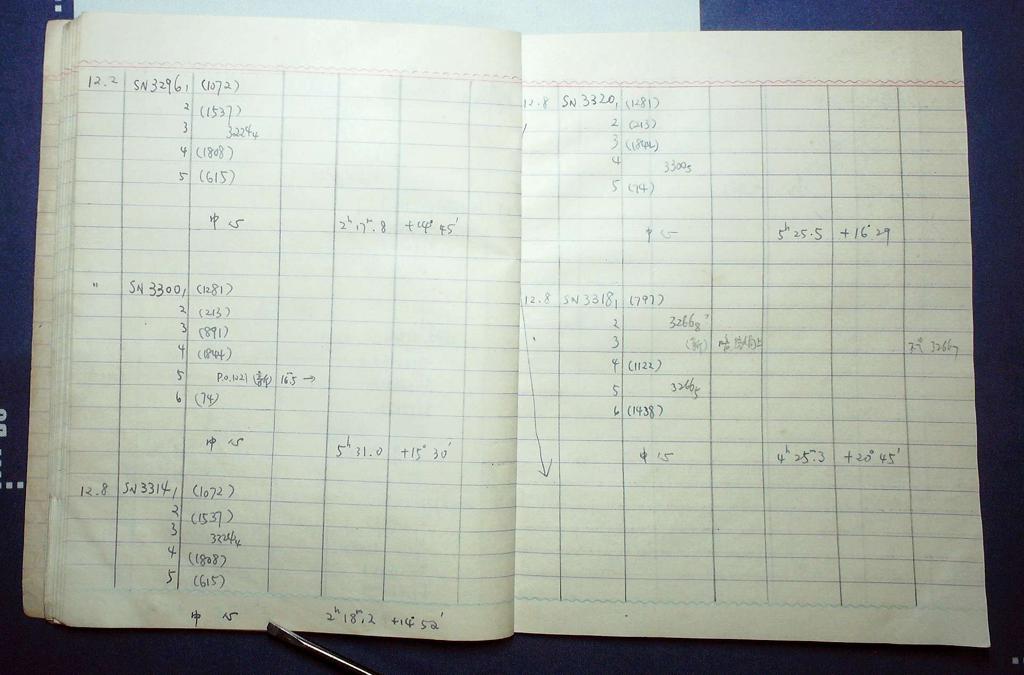 12.2 SN3296, (1072)
2 (1537)
3 3224₄
4 (1808)
5 (615)
中心 2ʰ 17ᵐ.8 +14° 45′
" SN3300, (1281)
2 (213)
3 (891)
4 (1844)
5 P.O.1021 (新) 16ᵐ5 →
6 (74)
中心 5ʰ 31.0 +15° 30′
12.8 SN3314, (1072)
2 (1537)
3 3224₄
4 (1808)
5 (615)
中心 2ʰ 18ᵐ.2 +14° 52′
12.8 SN3320, (1281)
2 (213)
3 (1844)
4 3300₅
5 (74)
中心 5ʰ 25.5 +16° 29
12.8 SN3318, (797)
2 3266₈
3 (新) 3266₇
4 (1122)
5 3266₅
6 (1438)
中心 4ʰ 25ᵐ.3 +20° 45′